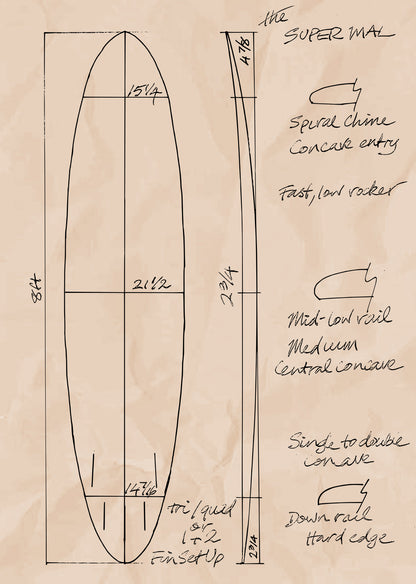 the
SUPER MAL
4 7/8
15 1/4
Spiral Chine
Concave entry
Fast, low rocker
8ft
21 1/2
2 3/4
Mid-low rail
Medium
Central concave
Single to double
concave
14 7/16
tri/quad
or
1+2
Fin Set Up
2 3/4
Down rail
Hard edge